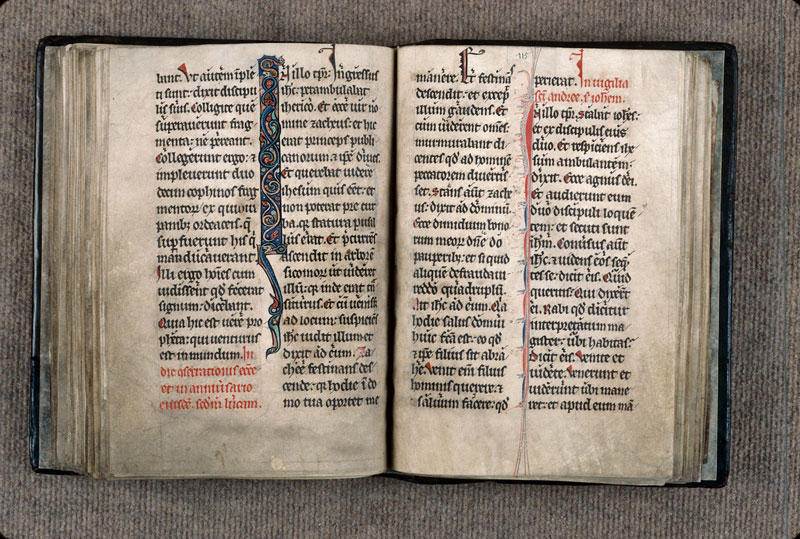 bant. Ut autem īple
ti sunt: dixit discipu
lis suis. Colligite que
superaverunt frag
menta: ne pereant.
Collegerunt ergo: &
impleverunt duo
decim cophinos frag
mentor ex quinq
panib ordeaceis. q̄
supfuerunt his q̄
manducaverant.
Illi ergo hoīes cum
vidissent qđ fecerat
signum: dicebant.
Quia hic est vere ꝓ
pheta: qui venturus
est in mundum. In
die ɔsecrationis ecce
et in anniversario
eiusdē. secđm lucam.
In illo tp̄r: Ingressus
ihc perambulabat
iherico. Et ecce vir no
mine zacheus: et hic
erat princeps publi
canorum: & ipse dives.
Et querebat videre
ihesum quis eēt: et
non poterat pre tur
ba. quia statura pusil
lus erat. Et p̄currēs
ascendit in arborē
sicomorū ut videret
illū: quia inde erat tn̄
siturus. Et cū venissꝫ
ad locum: suspiciens
ihc vidit illum et
dixit ad eum. Za
chee festinans des
cende: quia hodie ī do
mo tua oportet me
manere. Et festinās
descendit: et excep
illum gaudens. Et
cum viderent omēs:
murmurabant di
centes qđ ad hominē
peccatorem divertis
set. Stans aūt zache
us: dixit ad dominū.
Ecce dimidium bono
rum meor dn̄e do
pauperib; et si quid
aliquē defraudavi:
reddo quadruplū.
Ait ihc ad eum. Quia
hodie salus domui
huic fc̄a est: eo qđ
& ipse filius sit abra
he. Venit enī filius
hominis querere: &
salvum facere: qđ
115
perierat. In vigilia
sc̄i andree. s. iohem.
In illo tp̄r: Stabat iohēs:
et ex discipulis eius
duo. Et respiciens ihm
ambulantem:
dixit. Ecce agnus dei.
Et audierunt eum
duo discipuli loquē
tem: et secuti sunt
ihm. Conversus aūt
ihc: & videns eos seq̄
tes se: dicit eis. Quid
queritis: Qui dixerūt
ei. Rabi qđ dicitur
interpretatum ma
gister: ubi habitas:
Dicit eis. Venite et
videte. Venerunt et
viderunt ubi mane
ret: et apud eum mā